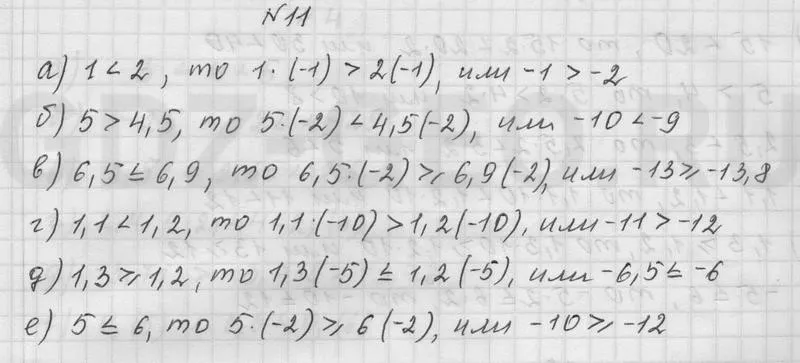 №11
а) 1 < 2, то 1·(-1) > 2(-1), или -1 > -2
б) 5 > 4,5, то 5·(-2) < 4,5(-2), или -10 < -9
в) 6,5 ≤ 6,9, то 6,5·(-2) ≥ 6,9(-2), или -13 ≥ -13,8
г) 1,1 < 1,2, то 1,1·(-10) > 1,2(-10), или -11 > -12
д) 1,3 ≥ 1,2, то 1,3(-5) ≤ 1,2(-5), или -6,5 ≤ -6
е) 5 ≤ 6, то 5·(-2) ≥ 6(-2), или -10 ≥ -12